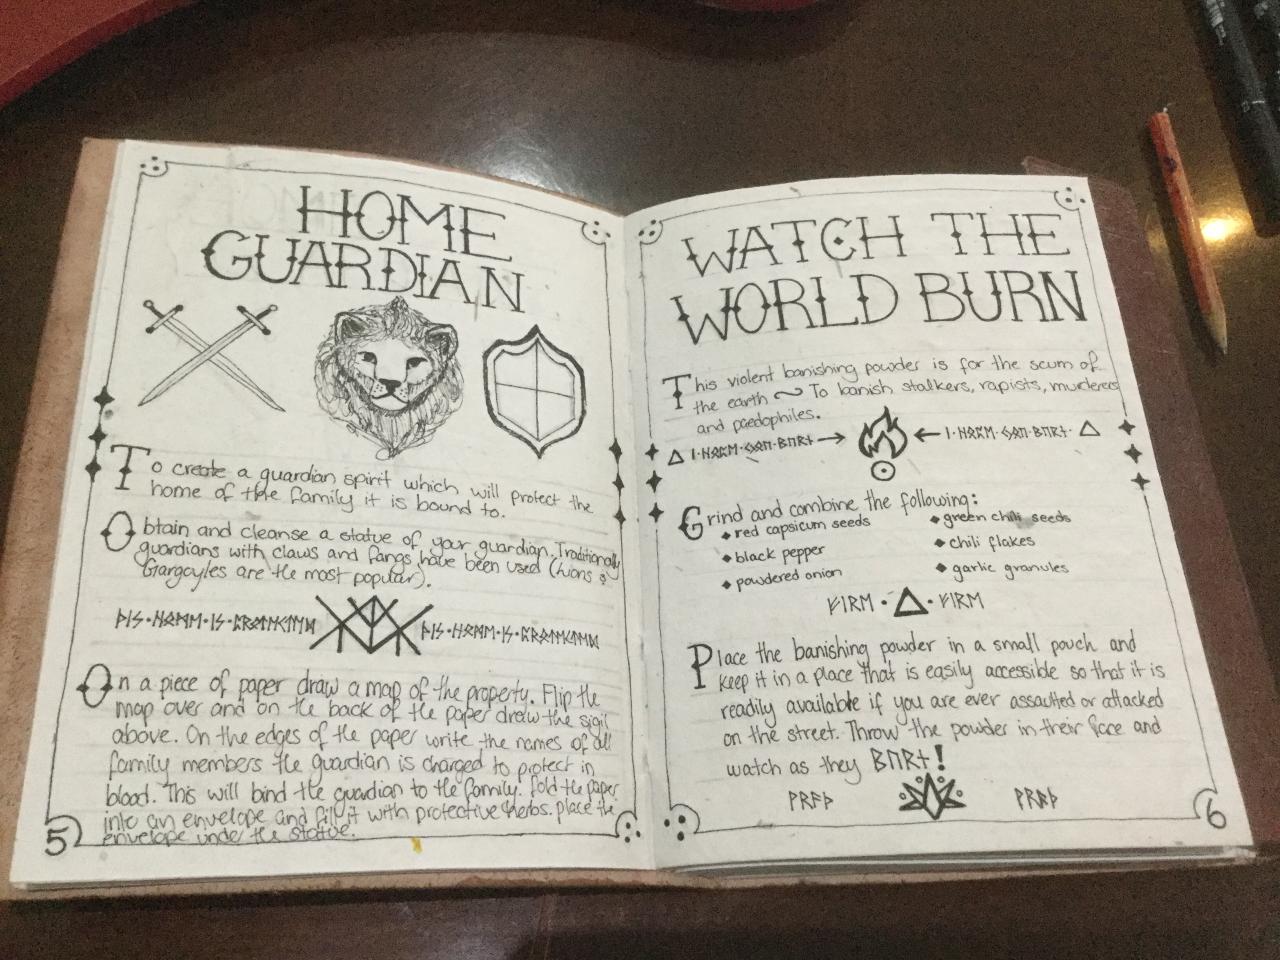 HOME
GUARDIAN
To create a guardian spirit which will protect the
home of the family it is bound to.
Obtain and cleanse a statue of your guardian. Traditionally
guardians with claws and fangs have been used (Lions &
Gargoyles are the most popular).
ᚦIS·ᚺᛟᛗᛖ·IS·ᛈᚱᛟᛏᛖᚲᛏᛖᛞ ᚦIS·ᚺᛟᛗᛖ·IS·ᛈᚱᛟᛏᛖᚲᛏᛖᛞ
On a piece of paper draw a map of the property. Flip the
map over and on the back of the paper draw the sigil
above. On the edges of the paper write the names of all
family members the guardian is charged to protect in
blood. This will bind the guardian to the family. Fold the paper
into an envelope and fill it with protective herbs. place the
envelope under the statue.
5
WATCH THE
WORLD BURN
This violent banishing powder is for the scum of
the earth ~ To banish stalkers, rapists, murderers
and paedophiles.
Grind and combine the following:
red capsicum seeds
black pepper
powdered onion
green chili seeds
chili flakes
garlic granules
ᚠIRᛖ · △ · ᚠIRᛖ
Place the banishing powder in a small pouch and
keep it in a place that is easily accessible so that it is
readily available if you are ever assaulted or attacked
on the street. Throw the powder in their face and
watch as they ᛒᚢᚱᚾ!
6